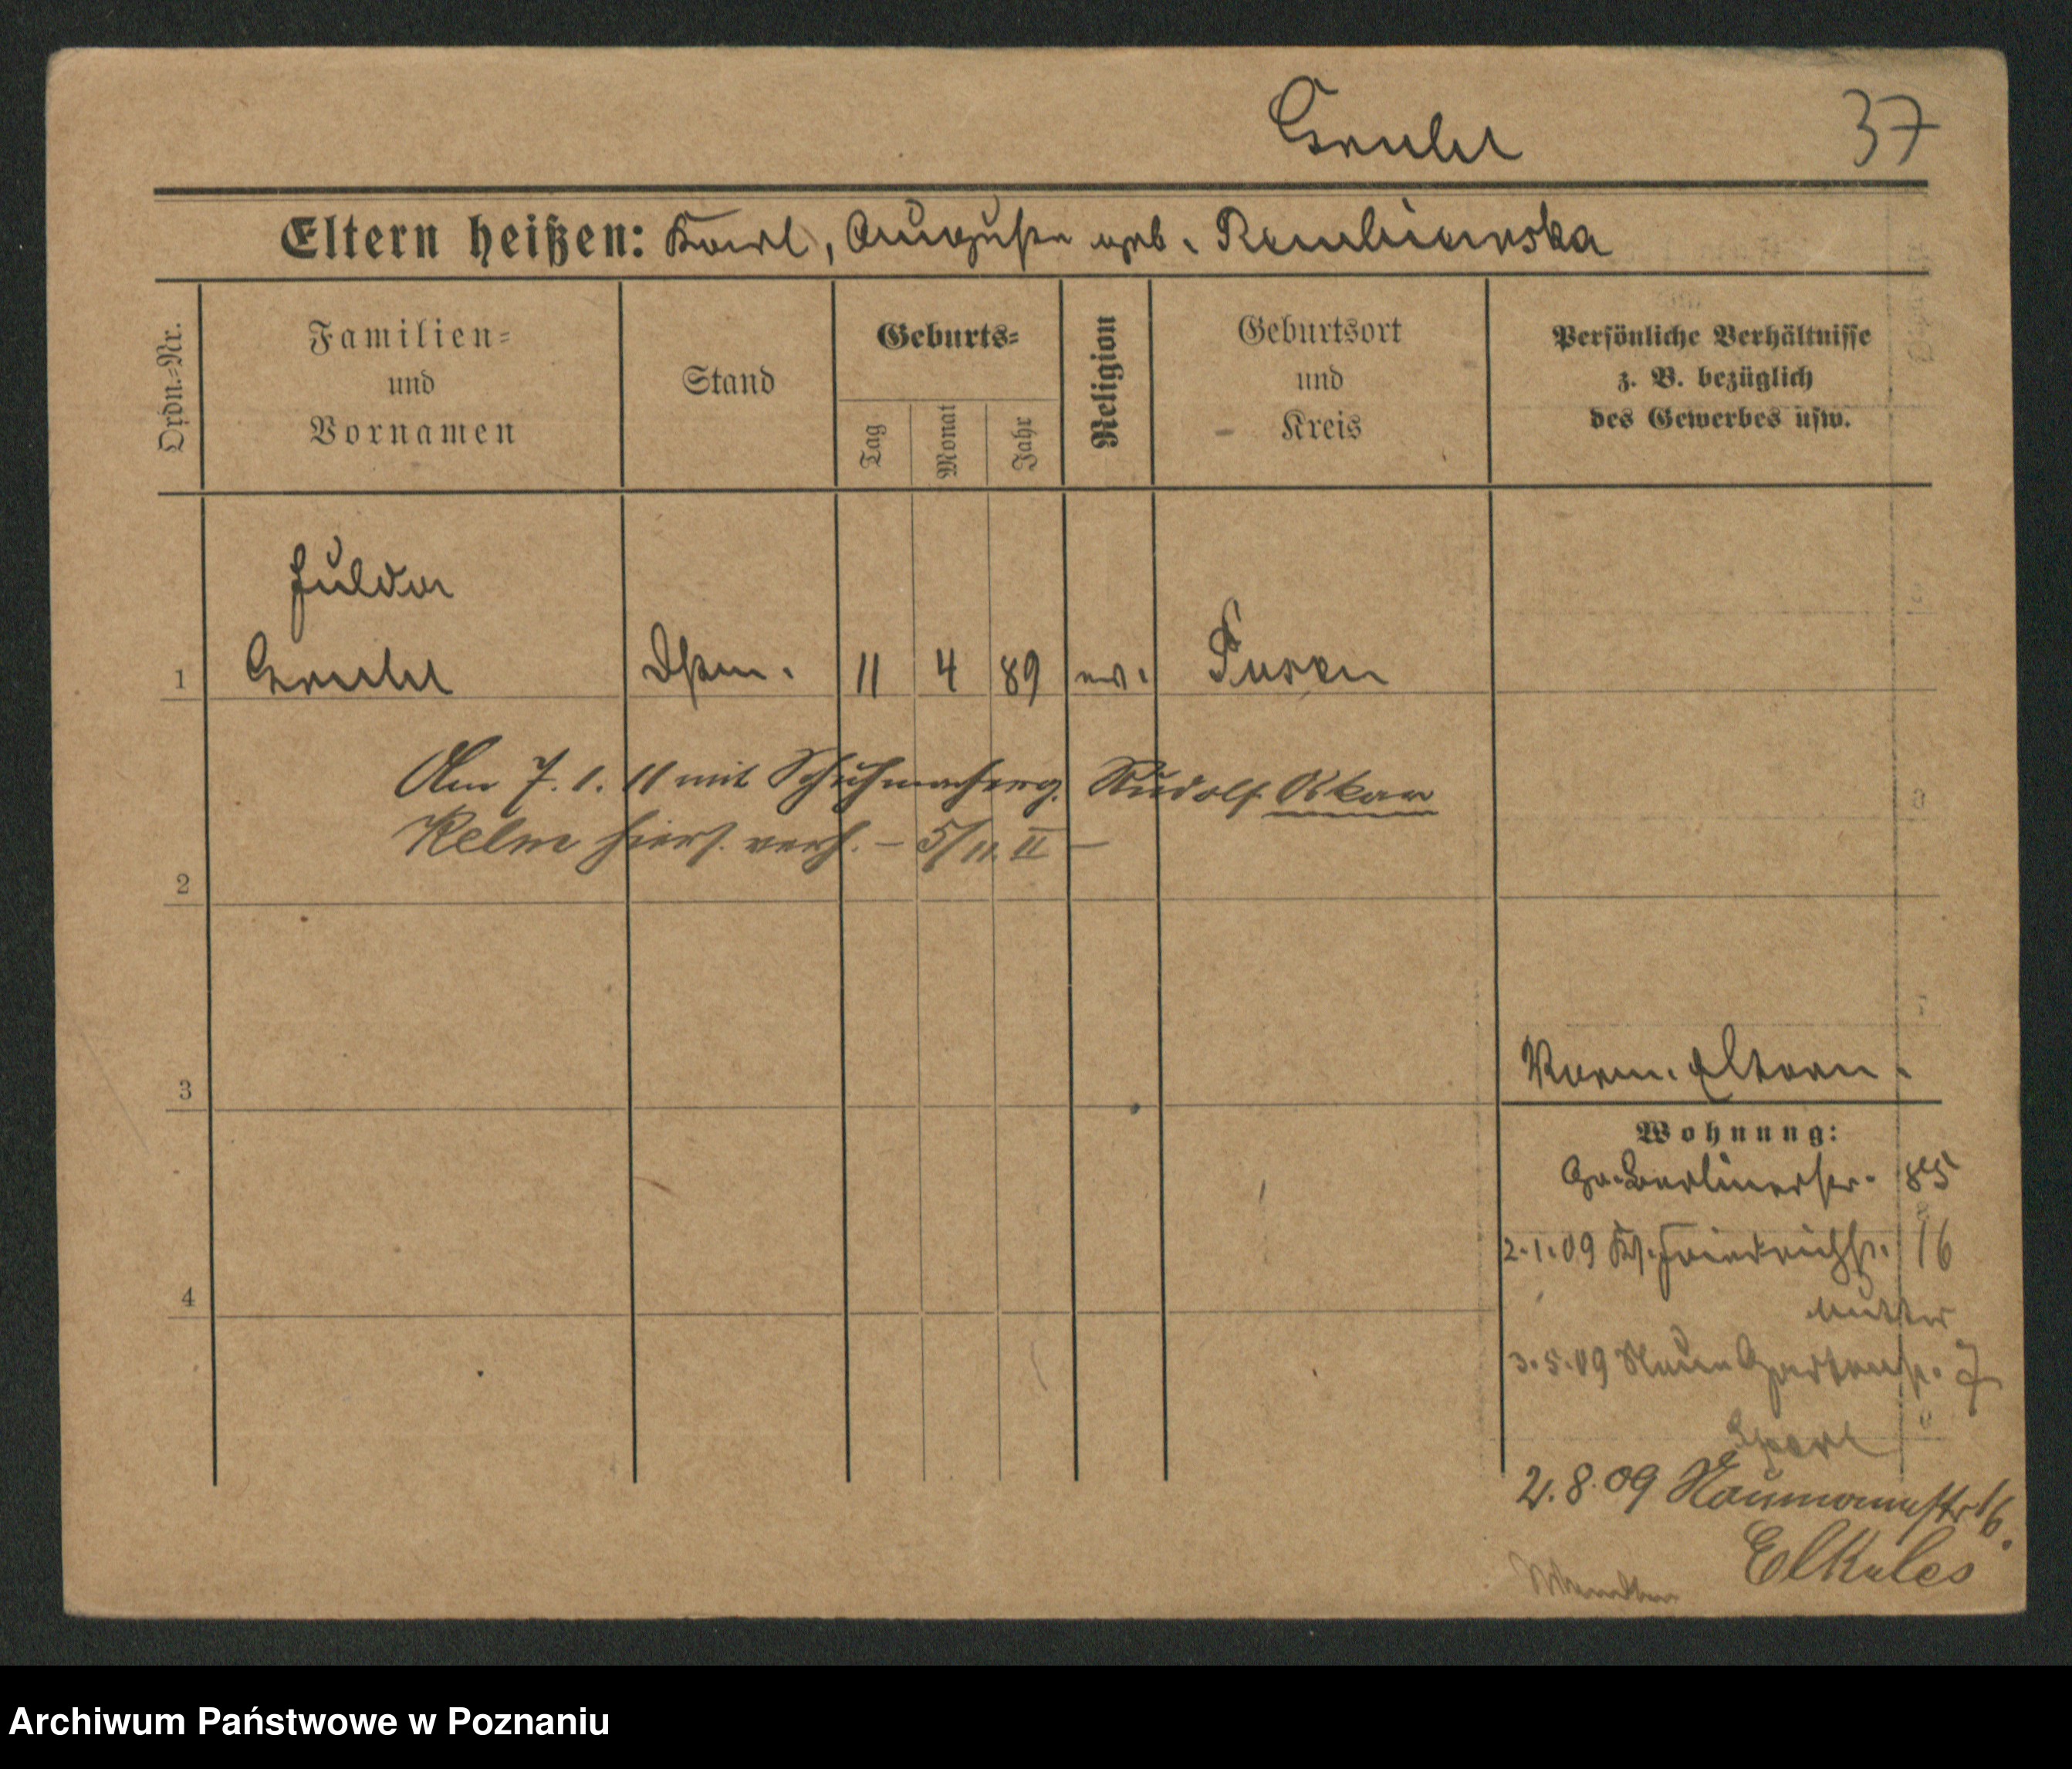 37
Eltern heißen: Karl, Auguste geb.
Ordn.-Nr.
Familien-
und
Vornamen
Stand
Geburts-
Tag
Monat
Jahr
Religion
Geburtsort
und
Kreis
Persönliche Verhältnisse
z. B. bezüglich
des Gewerbes usw.
Hulda
1 Dstm. 11 4 89 ev. Posen
Am 7. 1. 11 mit Schuhmacherg. Rudolf Oskar
Kelm hiers. verh. – 5/11. II –
2
3
Eltern.
Wohnung:
Gr. Berlinerstr. 85
4
2.1.09 Ks. Friedrichstr. 16
Mutter
3.5.09 Neue Gartenstr. 7
2.8.09 Naumannstr 16.
Elkeles
Archiwum Państwowe w Poznaniu